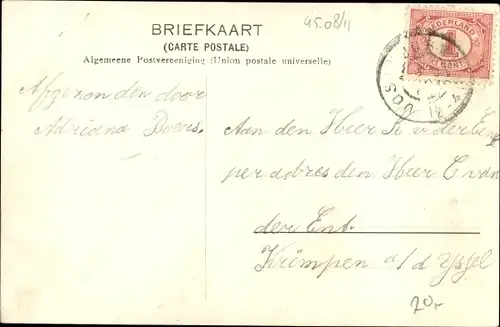 BRIEFKAART
(CARTE POSTALE)
Algemeene Postvereeniging (Union postale universelle)
45.08/11
NEDERLAND
1
CENT
Afgezonden door
Adriana Boers.
Aan den Heer K v der Ent
per adres den Heer C van
der Ent.
Krimpen a/d Yssel
20,-